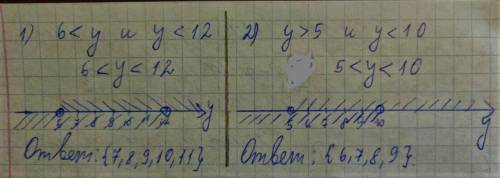 1) 6 < y и y < 12
6 < y < 12
6 7 8 9 10 11 12 y
Ответ: {7, 8, 9, 10, 11}.
2) y > 5 и y < 10
5 < y < 10
5 6 7 8 9 10 y
Ответ: {6, 7, 8, 9}.